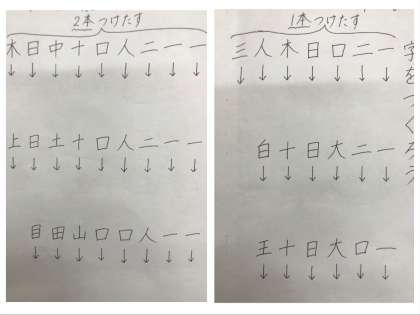 2本つけたす
木日中十口人二一一
↓↓↓↓↓↓↓↓↓
上日土十口人二一一
↓↓↓↓↓↓↓↓↓
目田山口口人一一
↓↓↓↓↓↓↓↓
1本つけたす
三人木日口二一
↓↓↓↓↓↓↓
白十日大二一
↓↓↓↓↓↓
王十日大口一
↓↓↓↓↓↓
字をつくろう